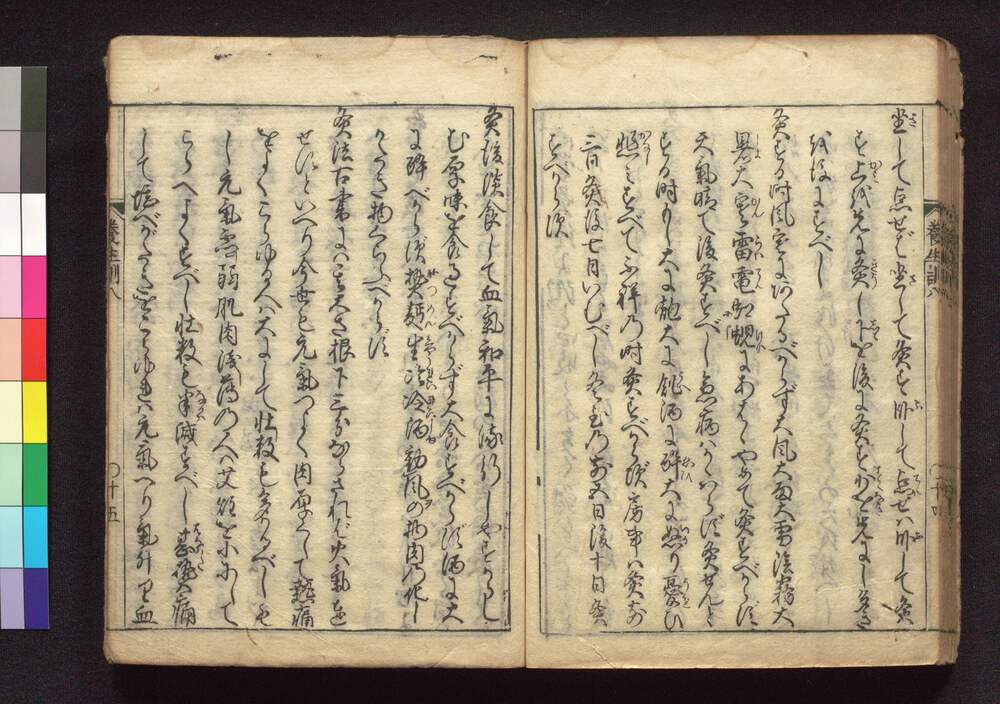 坐して点せば坐して灸す臥して点せハ臥して灸
す上を先に灸し下を後に灸す少を先にし多き
を後にすべし
灸する時風寒にあたるべからず大風大雨大雪陰霧大
暑大寒雷電虹蜺にあはゞやめて灸すべからず
天気晴て後灸すべし急病ハかゝはらず灸せんと
する時もし大に飽大に飢酒に酔大に怒り憂ひ
悲ミすべて不祥の時灸すべからず房事ハ灸前
三日灸後七日いむべし冬至の前五日後十日灸
すべからず
養生訓八
灸後淡食して血気和平に流行しやすからしむ
む厚味を食過すべからず大食すべからず酒に大
に酔べからず熱麺生冷冷酒動風の物肉の化し
がたき物くらふべからず
灸法古書にハ其大さ根下三分ならざれバ火気達
せずといへり今世も元気つよく肉厚くして熱痛
をよくこらゆる人ハ大にして壮数も多かるべしも
し元気虚弱肌肉浅薄の人ハ艾炷を小にして
こらへよくすべし壮数も半減すべし甚熱痛
して堪がたきをこらゆれハ元気へり気升り血
養生訓八
十五